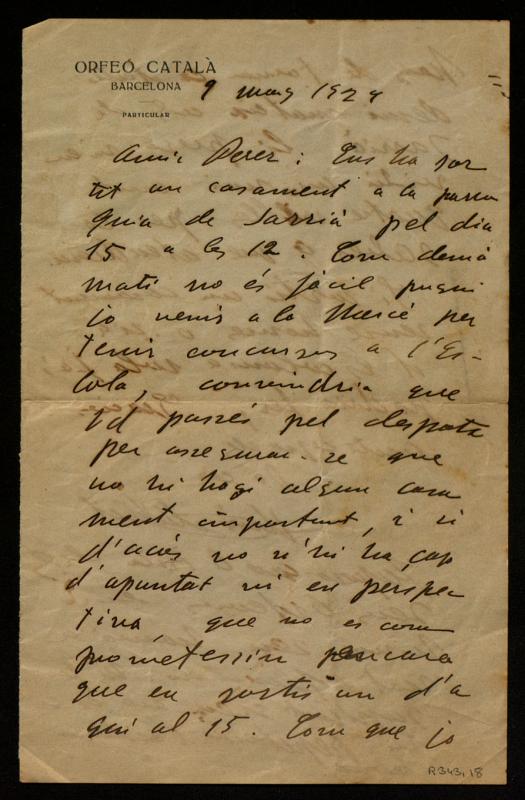 ORFEÓ CATALÀ
BARCELONA
PARTICULAR
9 maig 1928
Amic Perez: Ens ha sor
tit un casament a la parro
quia de Sarrià pel dia
15 a les 12. Com demà
matí no és fàcil pugui
jo venir a la Mercè per
tenir concursos a l'Es-
cola, convindria que
Vd passés pel despatx
per assegurar-se que
no hi hagi algun casa
ment important, i si
d'acàs no n'hi ha cap
d'apuntat ni en perspec
tiva que no es com
prometessin encara
que en sortís un d'a
quí al 15. Com que jo
R343,18